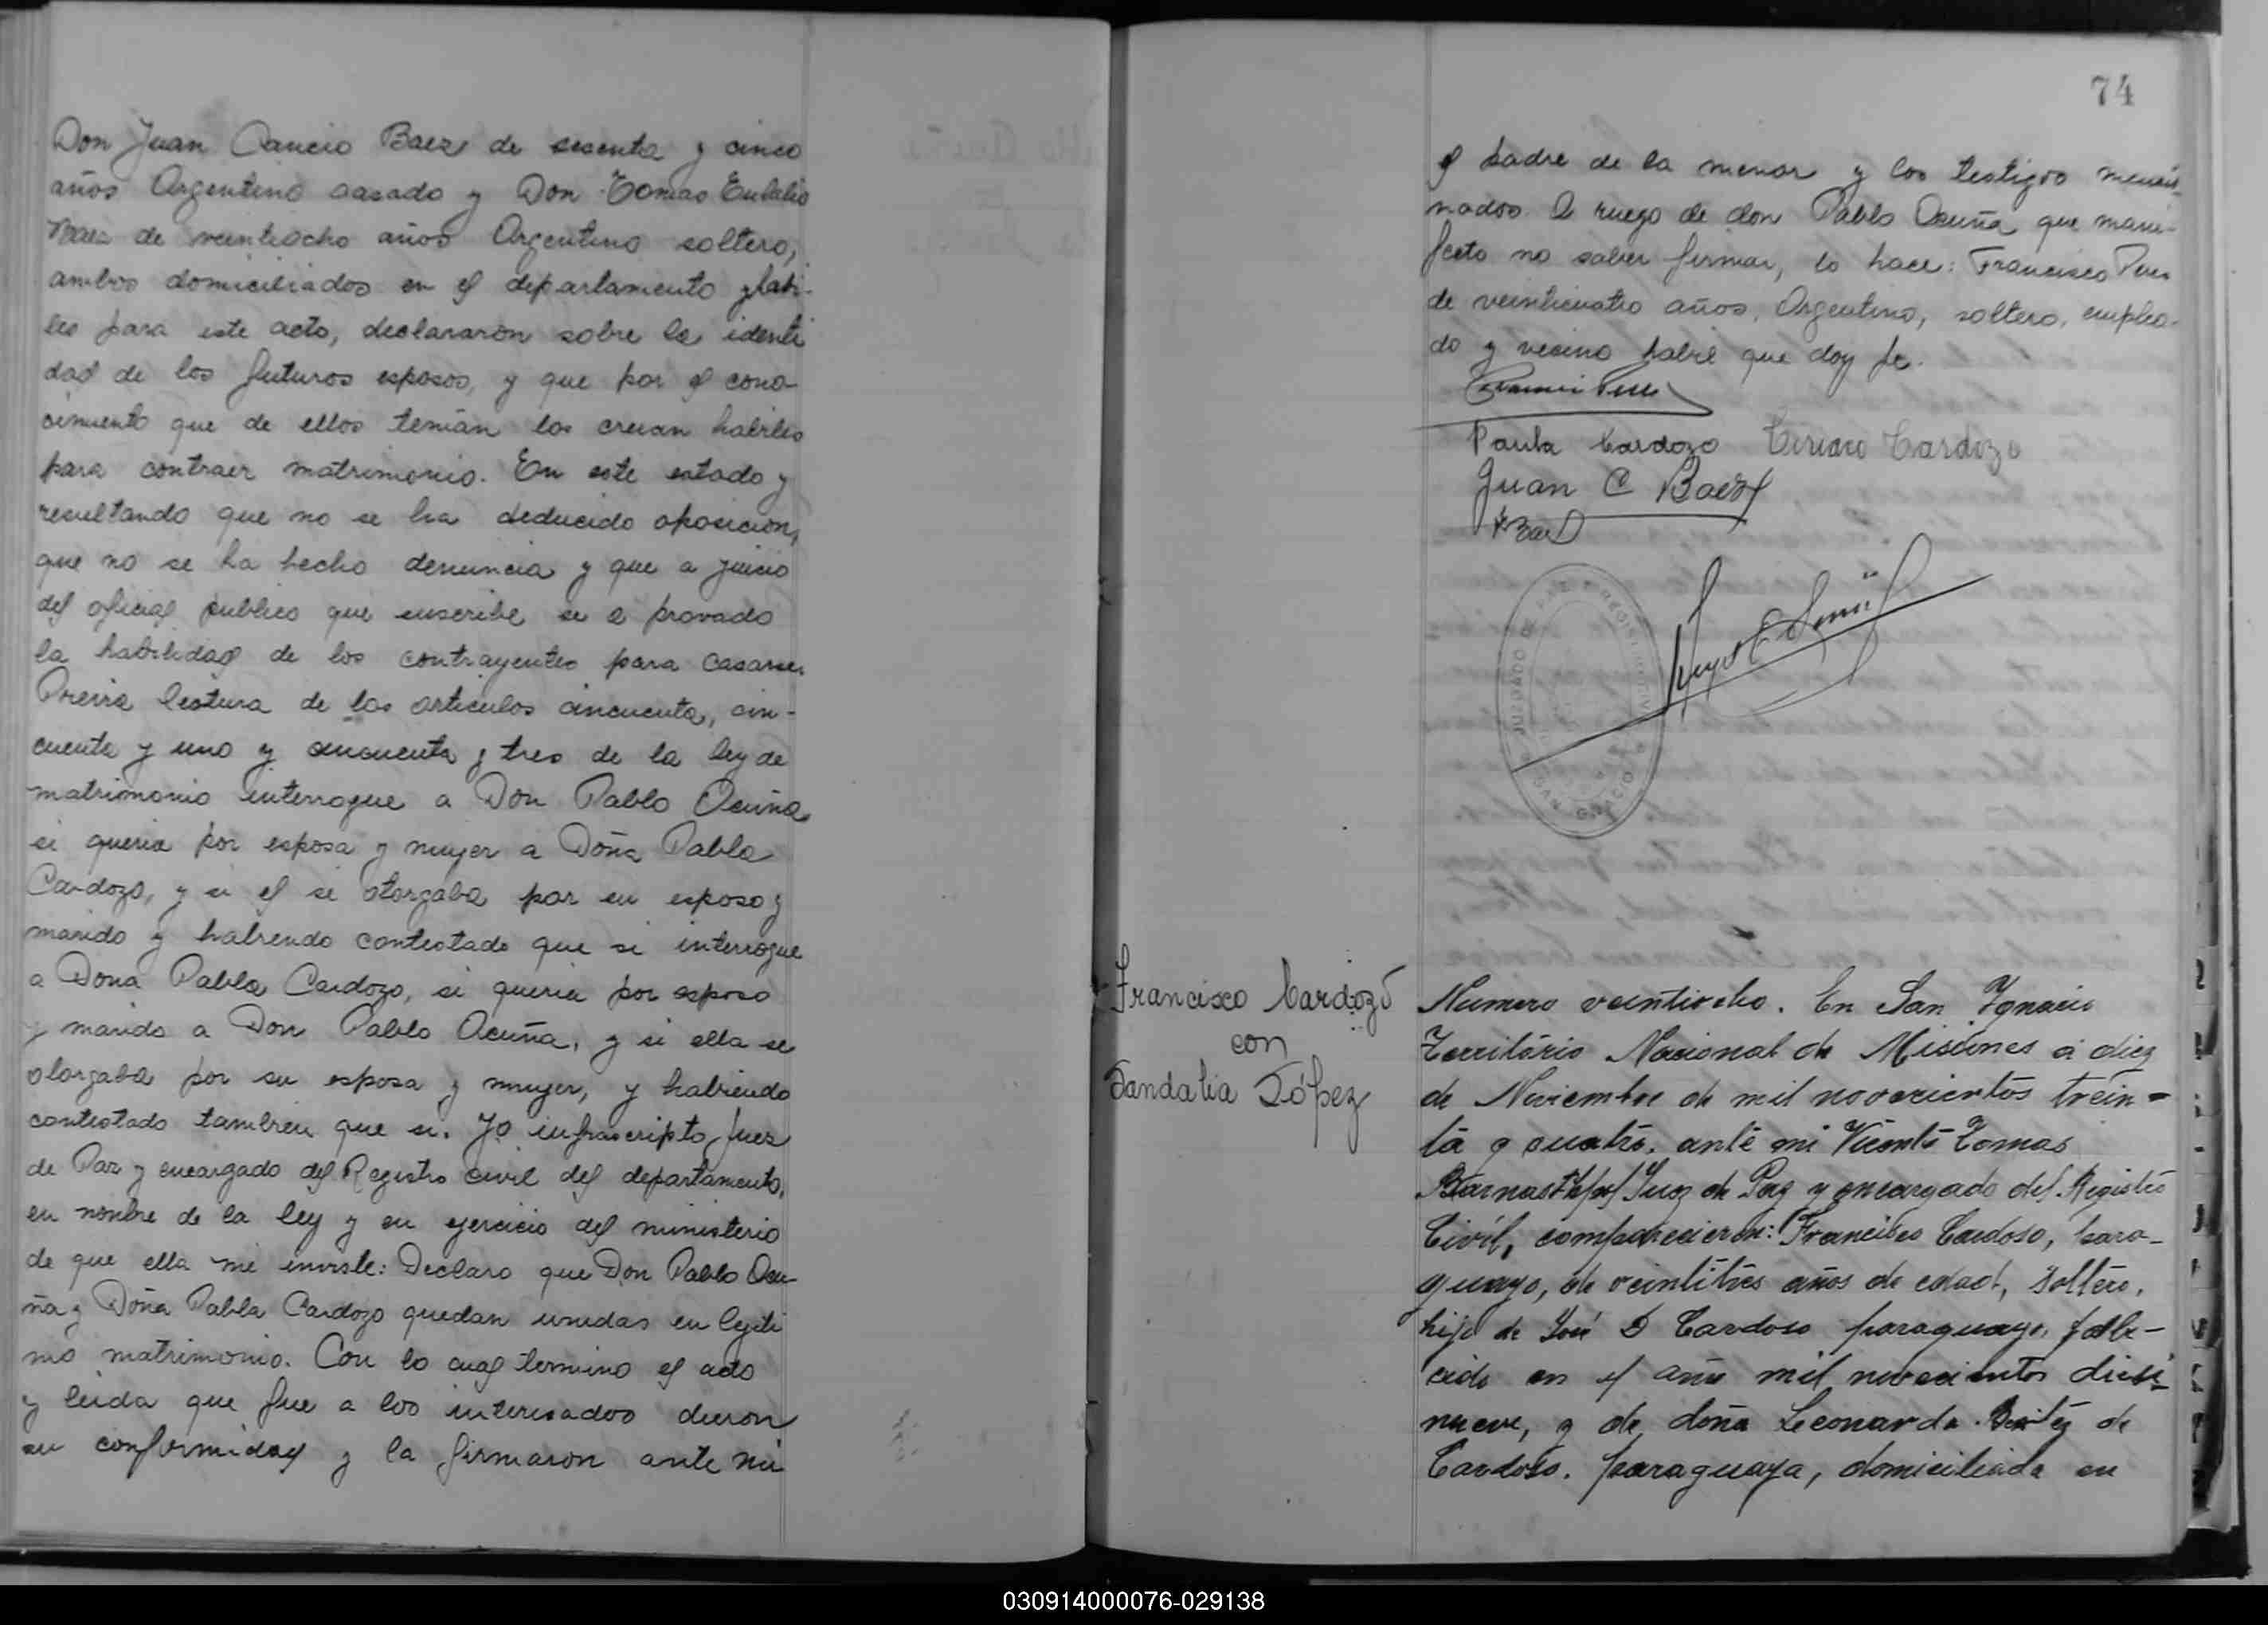 Don Juan Cancio Baez de sesenta y cinco
años Argentino casado y Don Tomas Eulalio
Baez de veintiocho años Argentino soltero,
ambos domiciliados en el departamento y habi-
les para este acto, declararon sobre la identi
dad de los futuros esposos, y que por el cono-
cimiento que de ellos tenian los creian habiles
para contraer matrimonio. En este estado y
resultando que no se ha deducido oposicion,
que no se ha hecho denuncia y que a juicio
del oficial publico que suscribe se a provado
la habilidad de los contrayentes para casarse.
Previa lectura de los articulos cincuenta, cin-
cuenta y uno y cincuenta y tres de la ley de
matrimonio interrogue a Don Pablo Acuña
si queria por esposa y mujer a Doña Pabla
Cardozo, y si el se otorgaba por su esposo y
marido y habiendo contestado que si interrogue
a Dona Pabla Cardozo, si queria por esposo
y marido a Don Pablo Acuña, y si ella se
otorgaba por su esposa y mujer, y habiendo
contestado tambien que si. Yo infrascripto Juez
de Paz y encargado del Registro civil del departamento,
en nombre de la ley y en ejercicio del ministerio
de que ella me inviste: Declaro que Don Pablo Acu-
ña y Doña Pabla Cardozo quedan unidas en legiti
mo matrimonio. Con lo cual termino el acto
y leida que fue a los interesados dieron
su conformidad y la firmaron ante mi
74
el padre de la menor y los testigos mencio-
nados. A ruego de don Pablo Acuña que mani-
festo no saber firmar, lo hace: Francisco
de veinticuatro años, Argentino, soltero, emplea-
do y vecino habil que doy fe.
Paula Cardozo Ciriaco Cardozo
Juan C Baez
JUZGADO DE PAZ Y REGISTRO CIVIL
SAN IGNACIO
Francisco Cardozo
con
Sandalia López
Numero veintiocho. En San Ygnacio
Território Nacional de Misiones a diez
de Noviembre de mil novecientos trein-
ta y cuatro, ante mi Vicente Tomas
Juez de Paz y encargado del Registro
Civil, comparecieron: Francisco Cardoso, para-
guayo, de veintitres años de edad, soltero,
hijo de José D Cardoso paraguayo, falle-
cido en el año mil novecientos dieci-
nueve, y de doña Leonarda Benitez de
Cardoso. paraguaya, domiciliada en
030914000076-029138